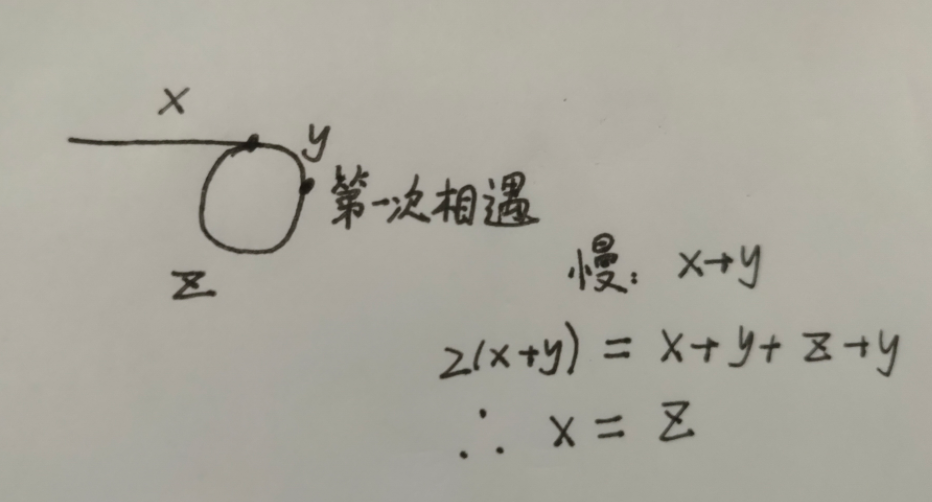 x
y
第一次相遇
z
慢: x→y
2(x+y) = x+y+z+y
∴ x = z